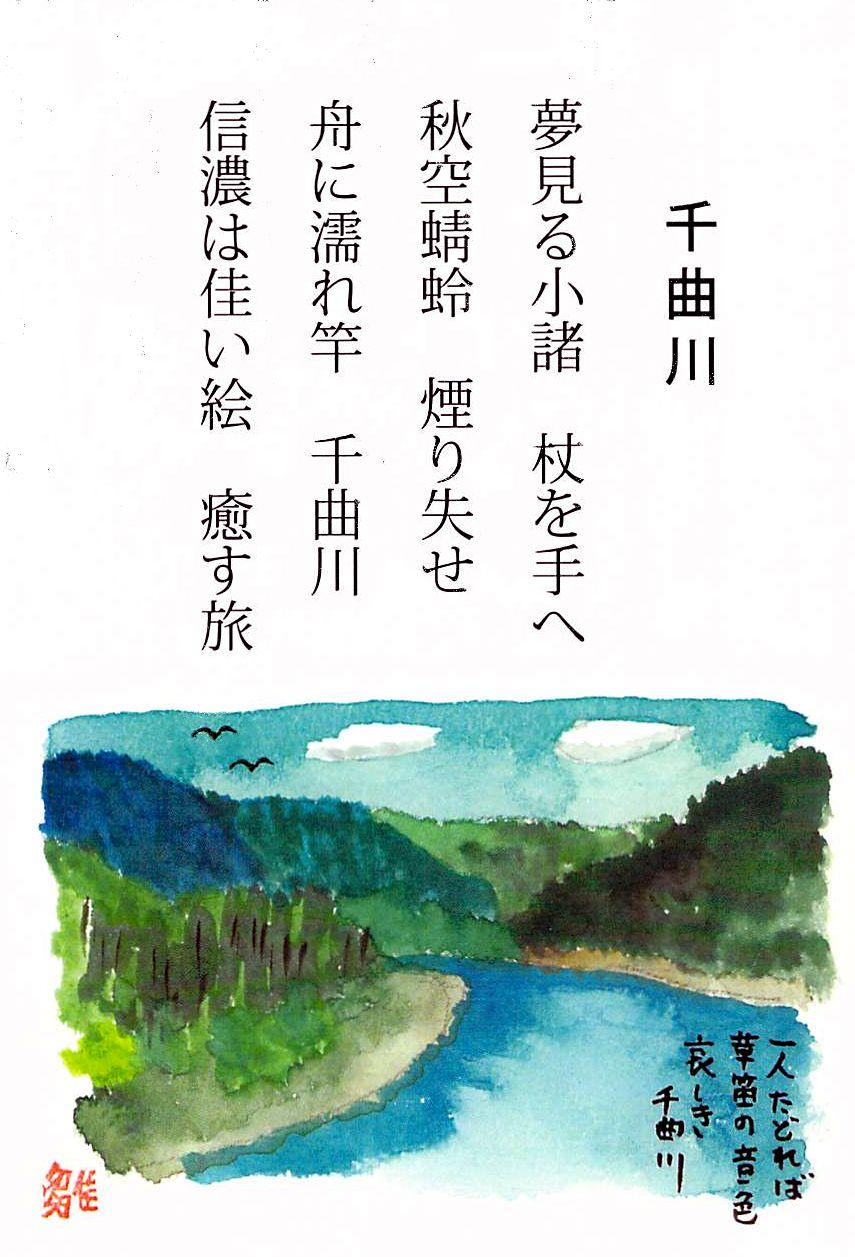 千曲川
夢見る小諸　杖を手へ
秋空蜻蛉　煙り失せ
舟に濡れ竿　千曲川
信濃は佳い絵　癒す旅
一人たどれば
草笛の音色
哀しき
千曲川